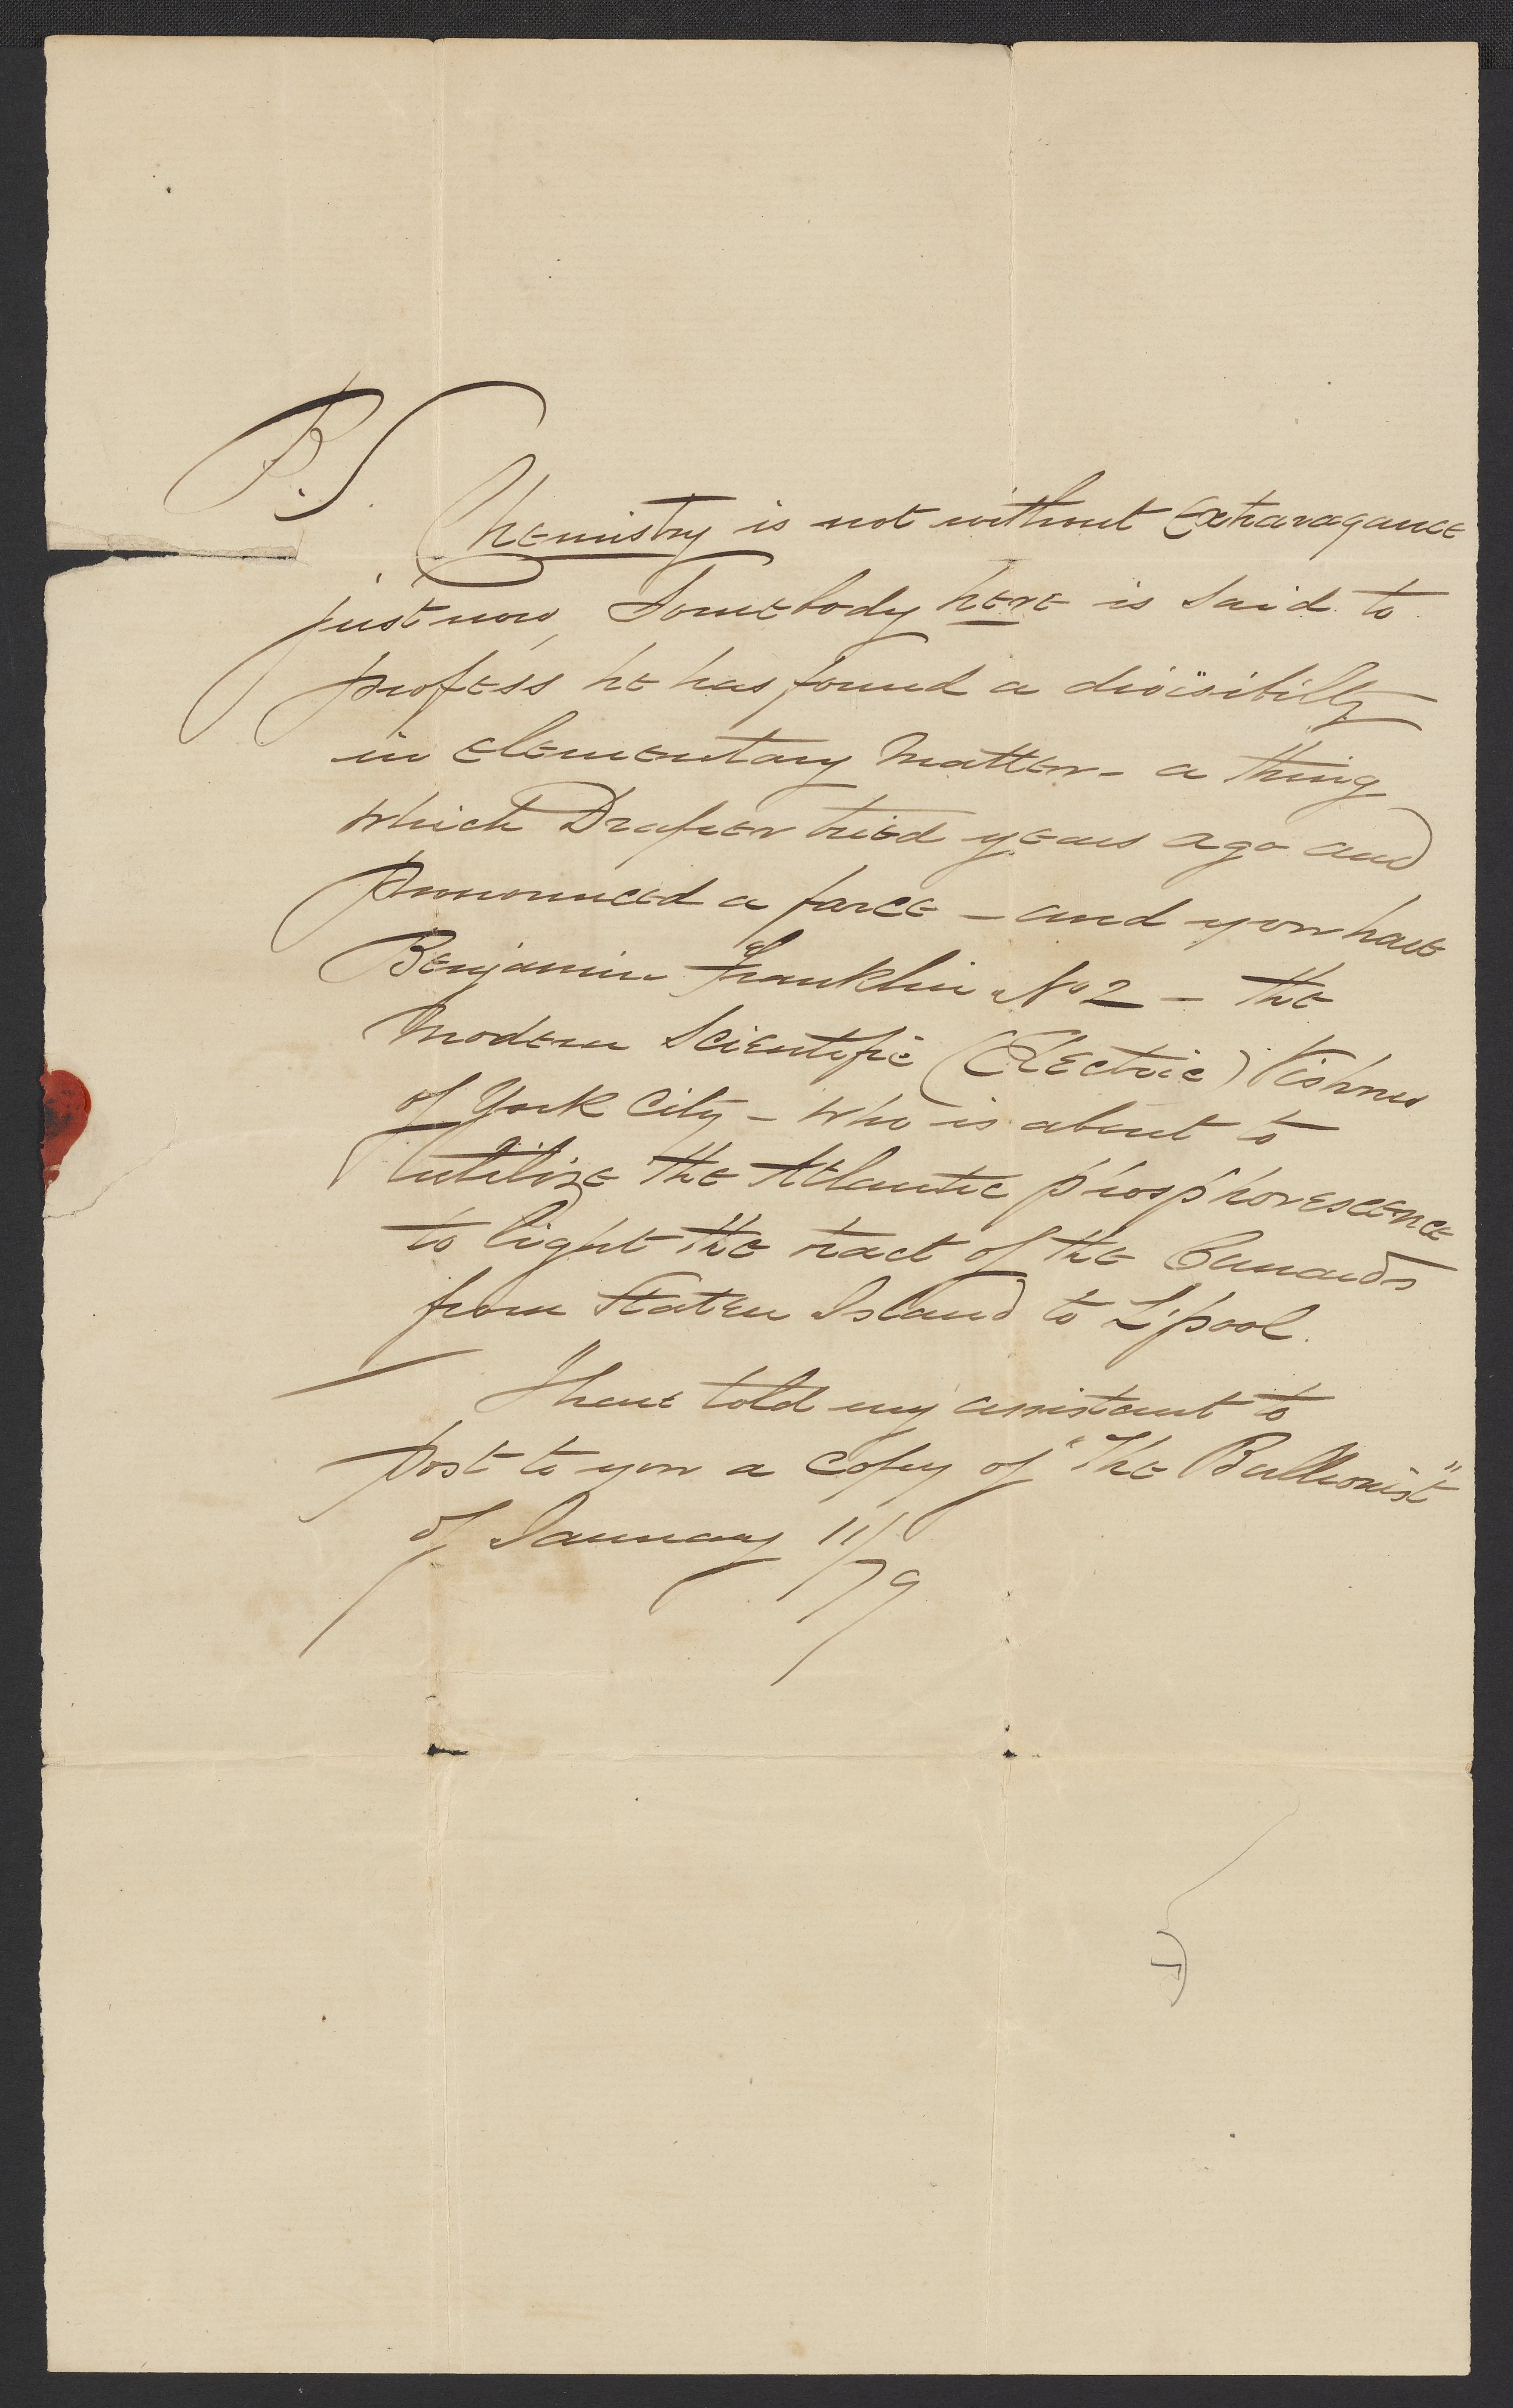 P.S.
Chemistry is not without Extravagance
just now, Somebody here is said to
profess he has found a divisibilty
in Elementary Matter - a thing
which Draper tried years ago and
Pronounced a farce - and you have
Benjamin Franklin No 2 - the
Modern Scientific (Electric) Vishnu
of York City - who is about to
utilize the Atlantic phosphorescence
to light the tract of the Cunards
from Staten Island to L'pool.
I have told my assistant to
post to you a copy of "The Bullionist"
of January 11/79